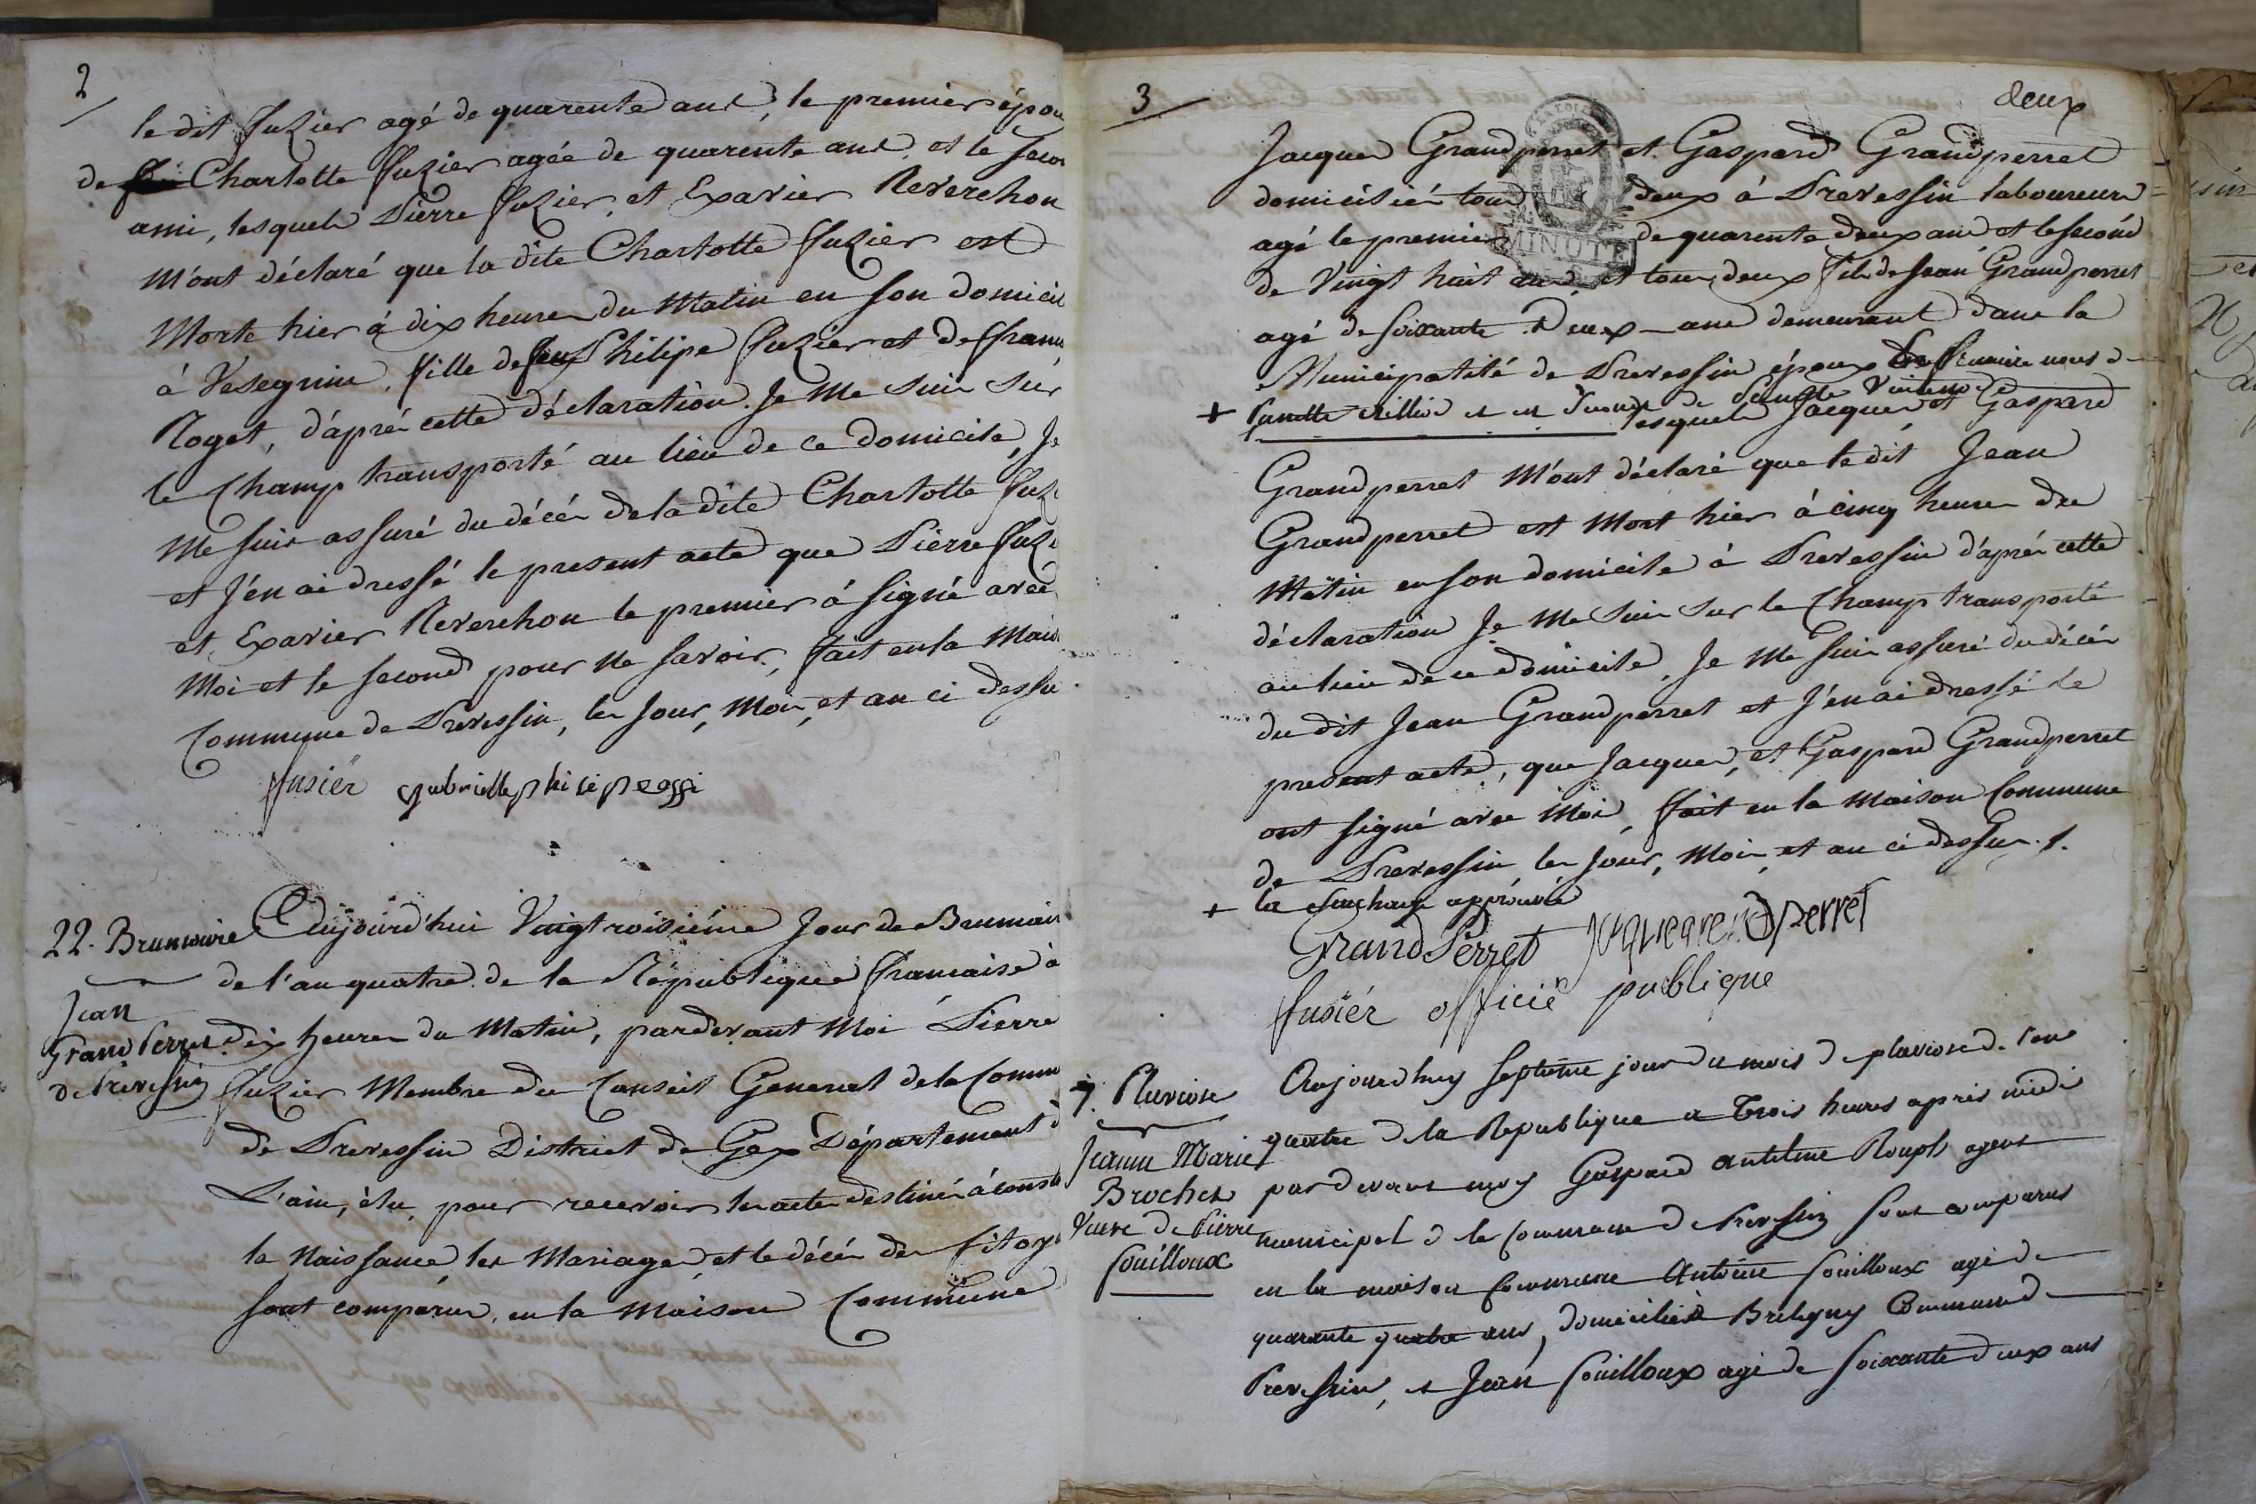 2
le dit fuzier agé de quarente ans, le premier épou
de Charlotte fuzier agée de quarente ans, et le secon
ami, lesquels Pierre fuzier, et Exavier Reverchon
M'ont déclaré que la dite Charlotte fuzier est
Morte hier à dix heures du Matin en son domicil
à Vesegnin, fille de feu Philipe fuzier et de fran
Roget, d'aprés cette déclaration. Je me suis sur
le Champ transporté au lieu de ce domicile, Je
Me suis assuré du décés de la dite Charlotte fuz
et J'en ai dressé le present acte que Pierre fuz
et Exavier Reverchon le premier à signé avec
Moi et le second pour ne savoir, fait en la Mais
Commune de Prevessin, les Jour, Mois, et an ci dessu
fusiér
22. Brumaire
Jean
Grand Perret
de Prevessin
Aujourd'hui Vingtroisiéme Jour de Brumair
de l'an quatre de la République francaise à
dix heures du Matin, pardevant Moi Pierre
fuzier Membre du Conseil General de la Comm
de Prevessin District de Gex Département d
L'ain, élu pour recevoir les actes destinés à const
la Naissance, les Mariages, et le décés des Citoy
sont comparus, en la Maison Commune
3
deux
Jacques Grandperret et Gaspard Grandperret
domiciliés tous deux à Prevessin laboureurs
agé le premier de quarente deux ans et le second
MINUTE
de Vingt huit ans, et tous deux fils de Jean Grandperret
agé de soixante Deux ans demeurant dans la
Municipalité de Prevessin époux
+
lesquels Jacques et Gaspard
Grandperret M'ont déclaré que le dit Jean
Grandperret est Mort hier à cinq heures du
Matin en son domicile à Prevessin d'aprés cette
déclaration Je Me suis sur le Champ transporté
au lieu de ce domicile, Je Me suis assuré du décés
du dit Jean Grandperret et J'en ai dressé le
present acte, que Jacques, et Gaspard Grandperret
ont signé avec Moi, fait en la Maison Commune
de Prevessin, les Jour, Mois, et an ci dessus.
+ la surcharge approuvée
Grand Perret
fusiér officié publique
7. Pluviose
Jeanne Marie
Brochet
Veuve de Pierre
Souilloux
Aujourdhuy septieme jour du mois de pluviose de l'an
quatre de la Republique a trois heures apres midi
pardevant moy Gaspard Antelme Rouph agent
municipal de la Commune de Prevessin sont comparus
en la maison Commune Antoine Souilloux agé de
quarante quatre ans, domicilié à Bretigny Commune de
Prevessin, et Jean Souilloux agé de soixante deux ans